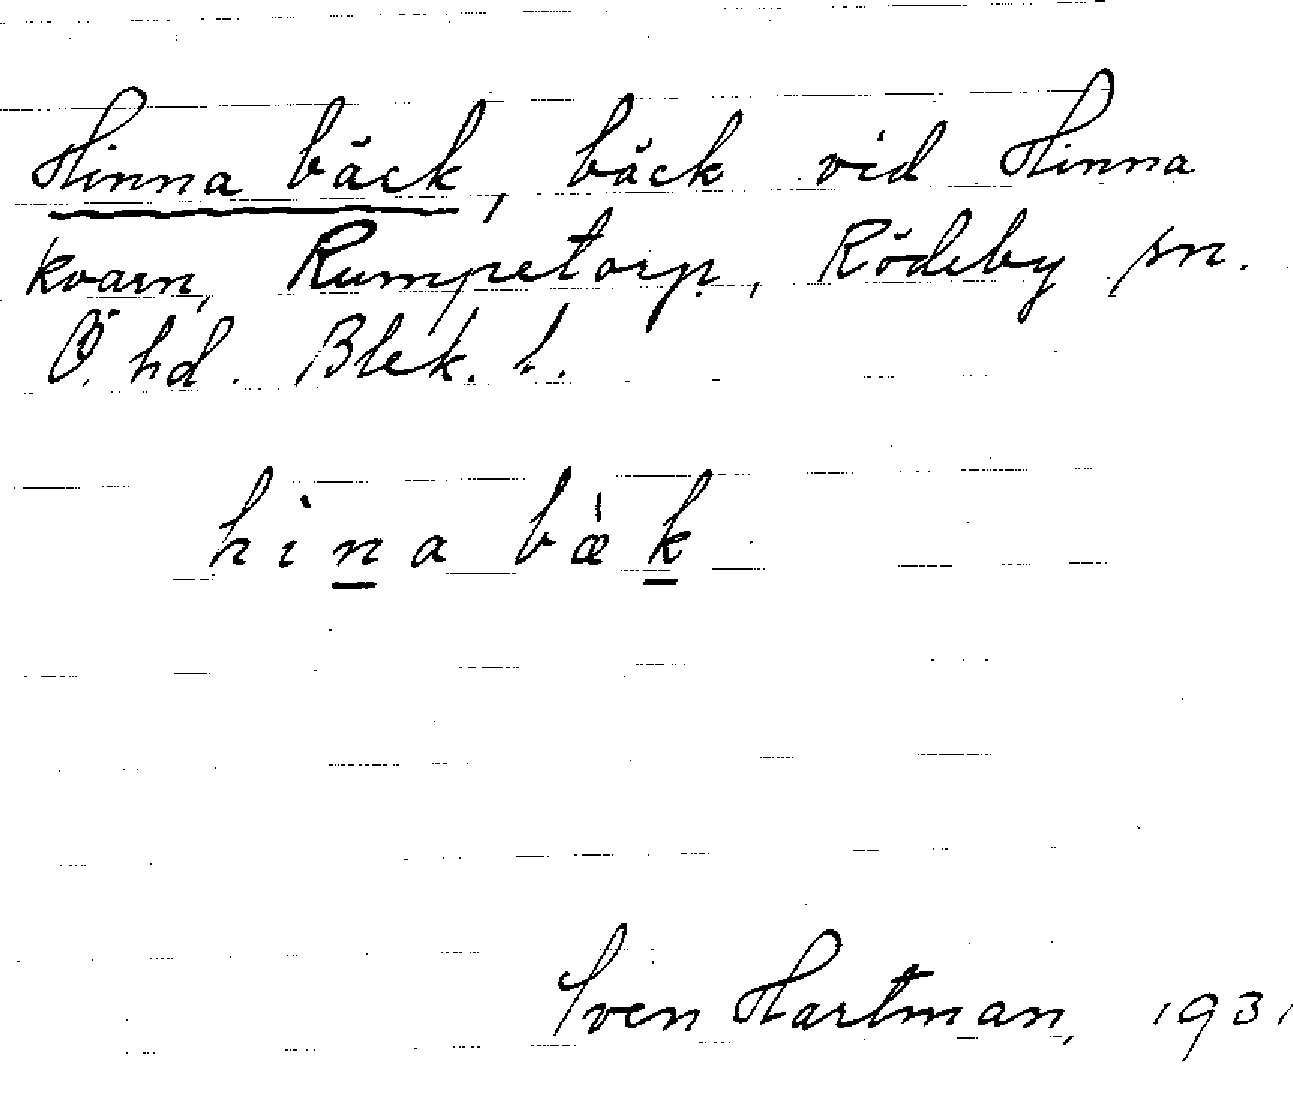 Hinna bäck, bäck vid Hinna
kvarn, Rumpetorp, Rödeby sn.
Ö. hd. Blek. l.
hina bæ̍k
Sven Hartman, 1931